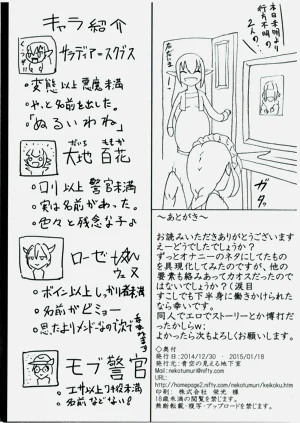 キャラ紹介
サラディアースクデス
変態以上悪魔未満
やっと名前を出した。
「ぬるいわね」
大地 百花
ロリ以上 警官未満
実は名前があった。
色々と残念な子♪
ローゼ
名前がどミョー
モブ警官
名前などない!
本日未明より
行方不明の
2人の…
ガタッ
～あとがき～
お読みいただきありがとうございます
えーどうでしたでしょうか?
ずっとオナニーのネタにしてたもの
を具現化してみたのですが、他の
要素も絡みあってカオスだったので
はないでしょうか?(涙目
すこしでも下半身に働きかけられた
なら幸いです。
同人でエロでストーリーとか博打だ
ったかしらw;
よかったら次もよろしくお願いします。
◇奥付
発行日:2014/12/30 ・ 2015/01/18
発行元:青空の見える地下室
Mail: nekotumuri@nifty.com
URL:
http://homepage2.nifty.com/nekotumuri/keikoku.htm
印刷: 株式会社 栄光 様
18歳未満の閲覧を禁じます。
無断転載・複写・アップロードを禁じます。